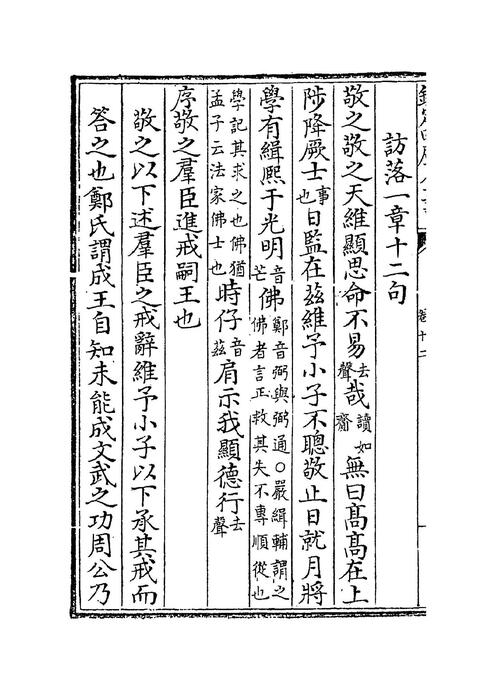 訪落一章十二句
敬之敬之天維顯思命不易去聲哉讀如齋無曰髙髙在上
陟降厥士事也日監在茲維予小子不聰敬止日就月將
學有緝熙于光明音芒佛鄭音弼與弼通○嚴緝輔謂之佛者言正救其失不專順從也
學記其求之也佛猶孟子云法家佛士也時仔音茲肩示我顯德行去聲
序敬之羣臣進戒嗣王也
敬之以下述羣臣之戒辭維予小子以下承其戒而
答之也鄭氏謂成王自知未能成文武之功周公乃